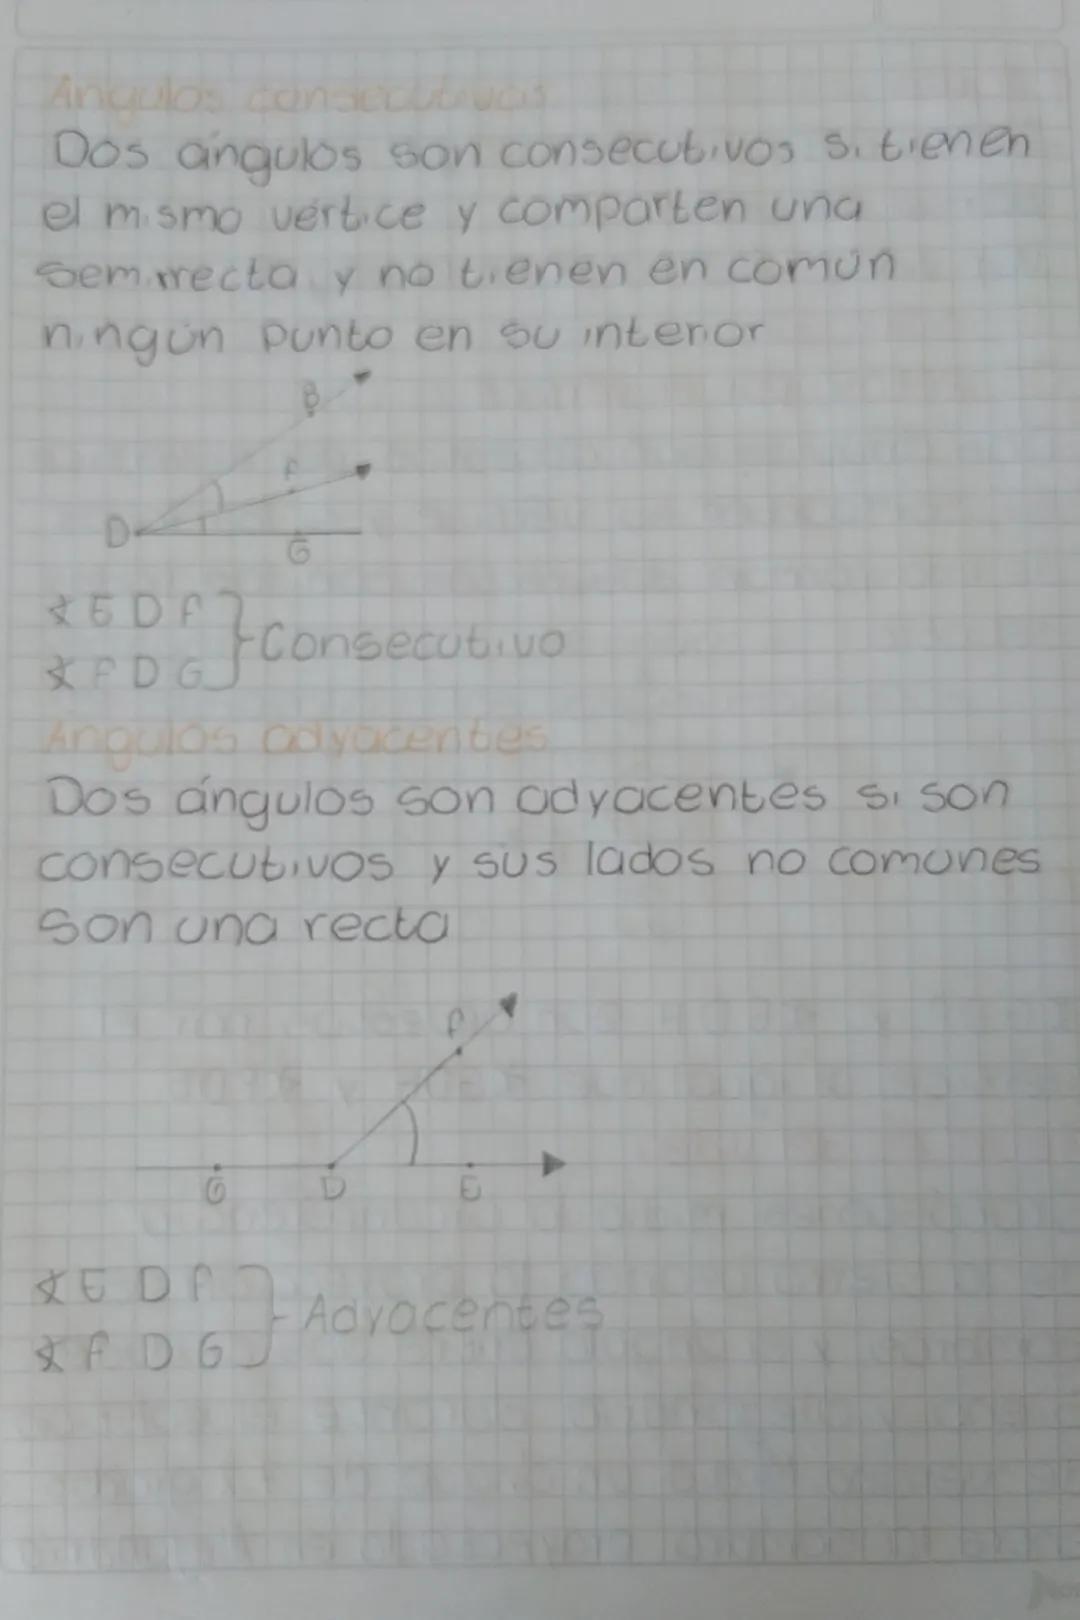 Angulos consecutivos
Dos ángulos son consecutivos si tienen
el mismo vértice y comparten una
semirrecta y no tienen en común
ningún punto en su interior
B
F
D
G
∡ E D F
∡ F D G
Consecutivo
Angulos adyacentes
Dos ángulos son adyacentes si son
consecutivos y sus lados no comunes
son una recta
F
G D E
∡ E D F
∡ F D G
Adyacentes